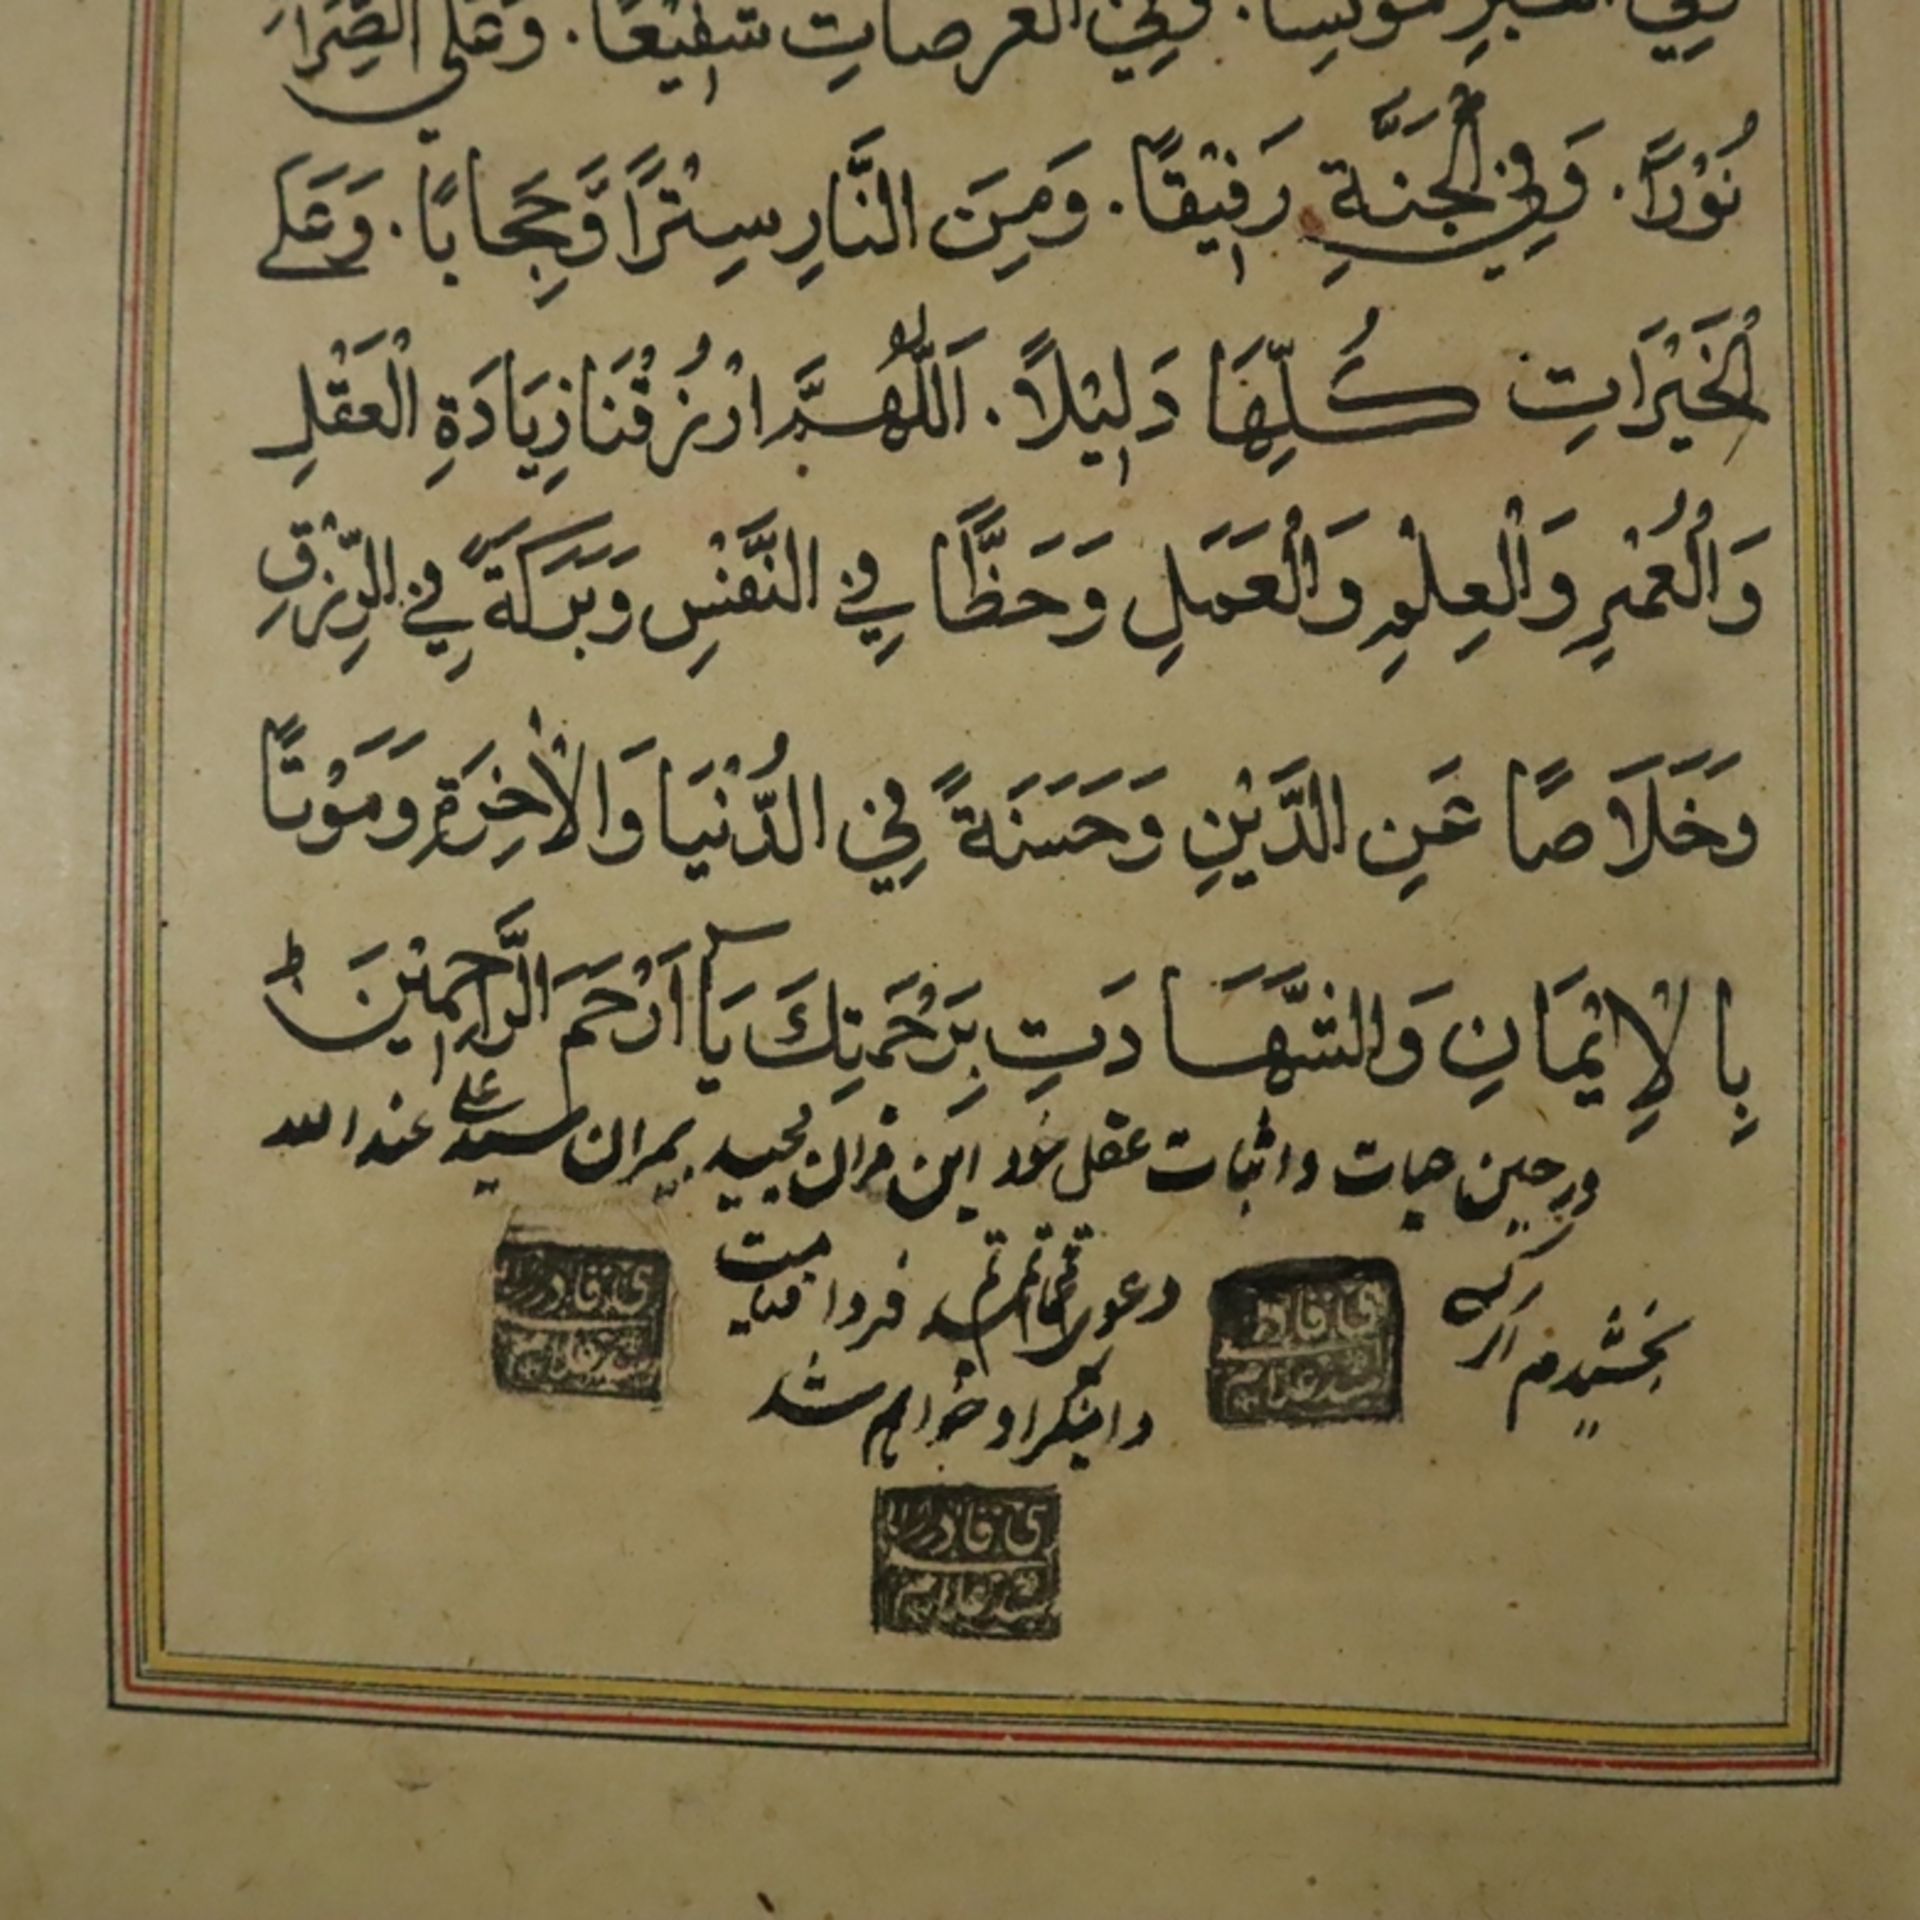 فِي الْقَبْرِ مُونِسًا. وَفِي الْعَرَصَاتِ شَفِيْعًا. وَعَلَى الصِّرَاطِ
نُوْرًا. وَفِي الْجَنَّةِ رَفِيْقًا. وَمِنَ النَّارِ سِتْرًا وَّحِجَابًا. وَعَلَى
الْخَيْرَاتِ كُلِّهَا دَلِيْلًا. اَللّٰهُمَّ ارْزُقْنَا زِيَادَةِ الْعَقْلِ
وَالْعُمْرِ وَالْعِلْمِ وَالْعَمَلِ وَحَظًّا فِي النَّفْسِ وَبَرَكَةً فِي الرِّزْقِ
وَخَلَاصًا عَنِ الدَّيْنِ وَحَسَنَةً فِي الدُّنْيَا وَالْاٰخِرَةِ وَمَوْتًا
بِالْاِيْمَانِ وَالشَّهَادَتِ بِرَحْمَتِكَ يَآ اَرْحَمَ الرَّاحِمِيْنَ ط
در حین حیات و اثبات عقل خود این قران مجید بمیران سید علی عند الله
بخشیدم اگر کسی
دعوی کند فردا قیامت
دامنگیر او خواهم شد